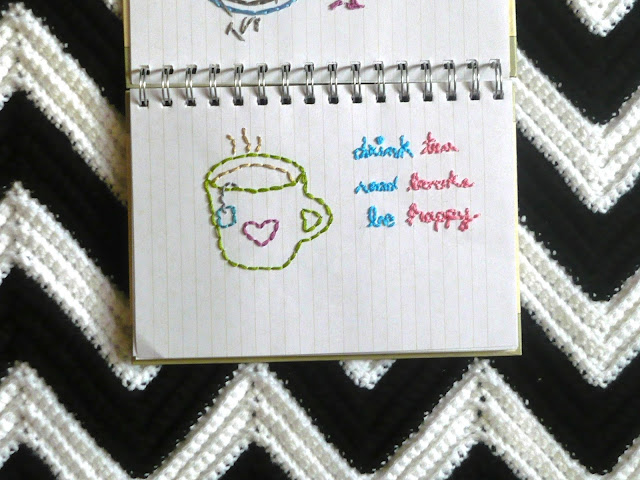 drink tea
read books
be happy